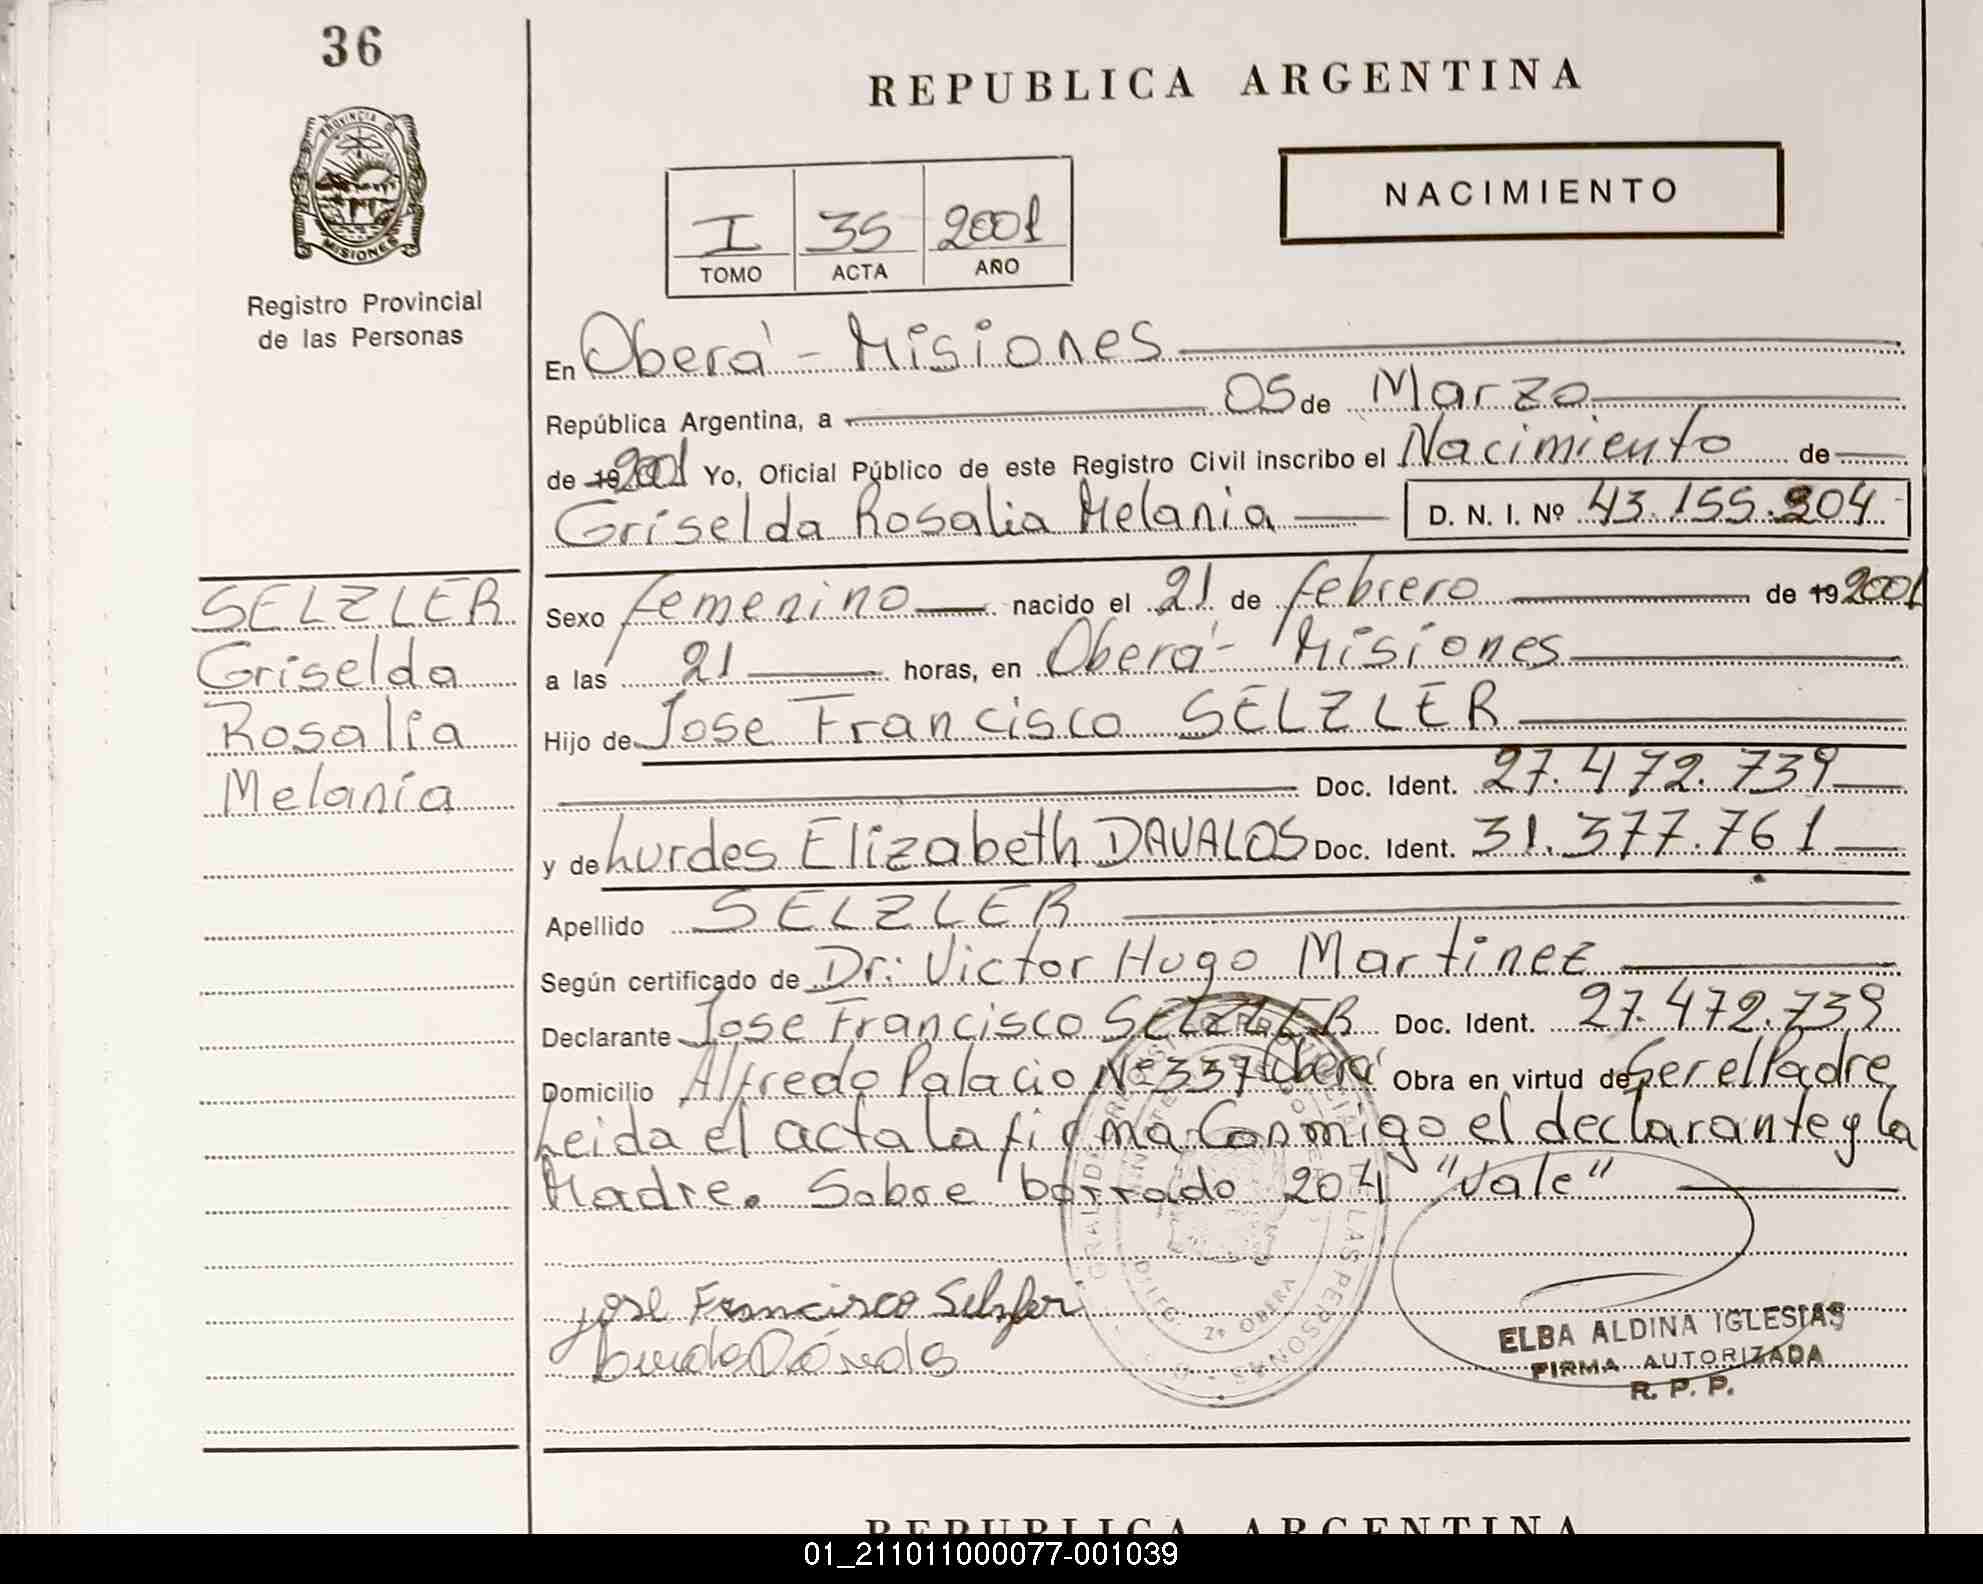 36
PROVINCIA DE
MISIONES
Registro Provincial
de las Personas
REPUBLICA ARGENTINA
NACIMIENTO
I 35 2001
TOMO ACTA AÑO
En Oberá - Misiones
República Argentina, a 05 de Marzo
de 19 2001 Yo, Oficial Público de este Registro Civil inscribo el Nacimiento de
Griselda Rosalia Melania D. N. I. Nº 43.155.204
SELZLER
Griselda
Rosalia
Melania
Sexo femenino nacido el 21 de febrero de 19 2001
a las 21 horas, en Oberá - Misiones
Hijo de Jose Francisco SELZLER
Doc. Ident. 27.472.739
y de Lurdes Elizabeth DAVALOS Doc. Ident. 31.377.761
Apellido SELZLER
Según certificado de Dr: Victor Hugo Martinez
Declarante Jose Francisco SELZLER Doc. Ident. 27.472.739
Domicilio Alfredo Palacio Nº 337 Oberá Obra en virtud de Ser el Padre
Leida el acta la firma Conmigo el declarante y la
Madre. Sobre borrado 204 "Vale"
Jose Francisco Selzler
ELBA ALDINA IGLESIAS
FIRMA AUTORIZADA
R. P. P.
LAS PERSONAS
OBERA
REPUBLICA ARGENTINA
01_211011000077-001039